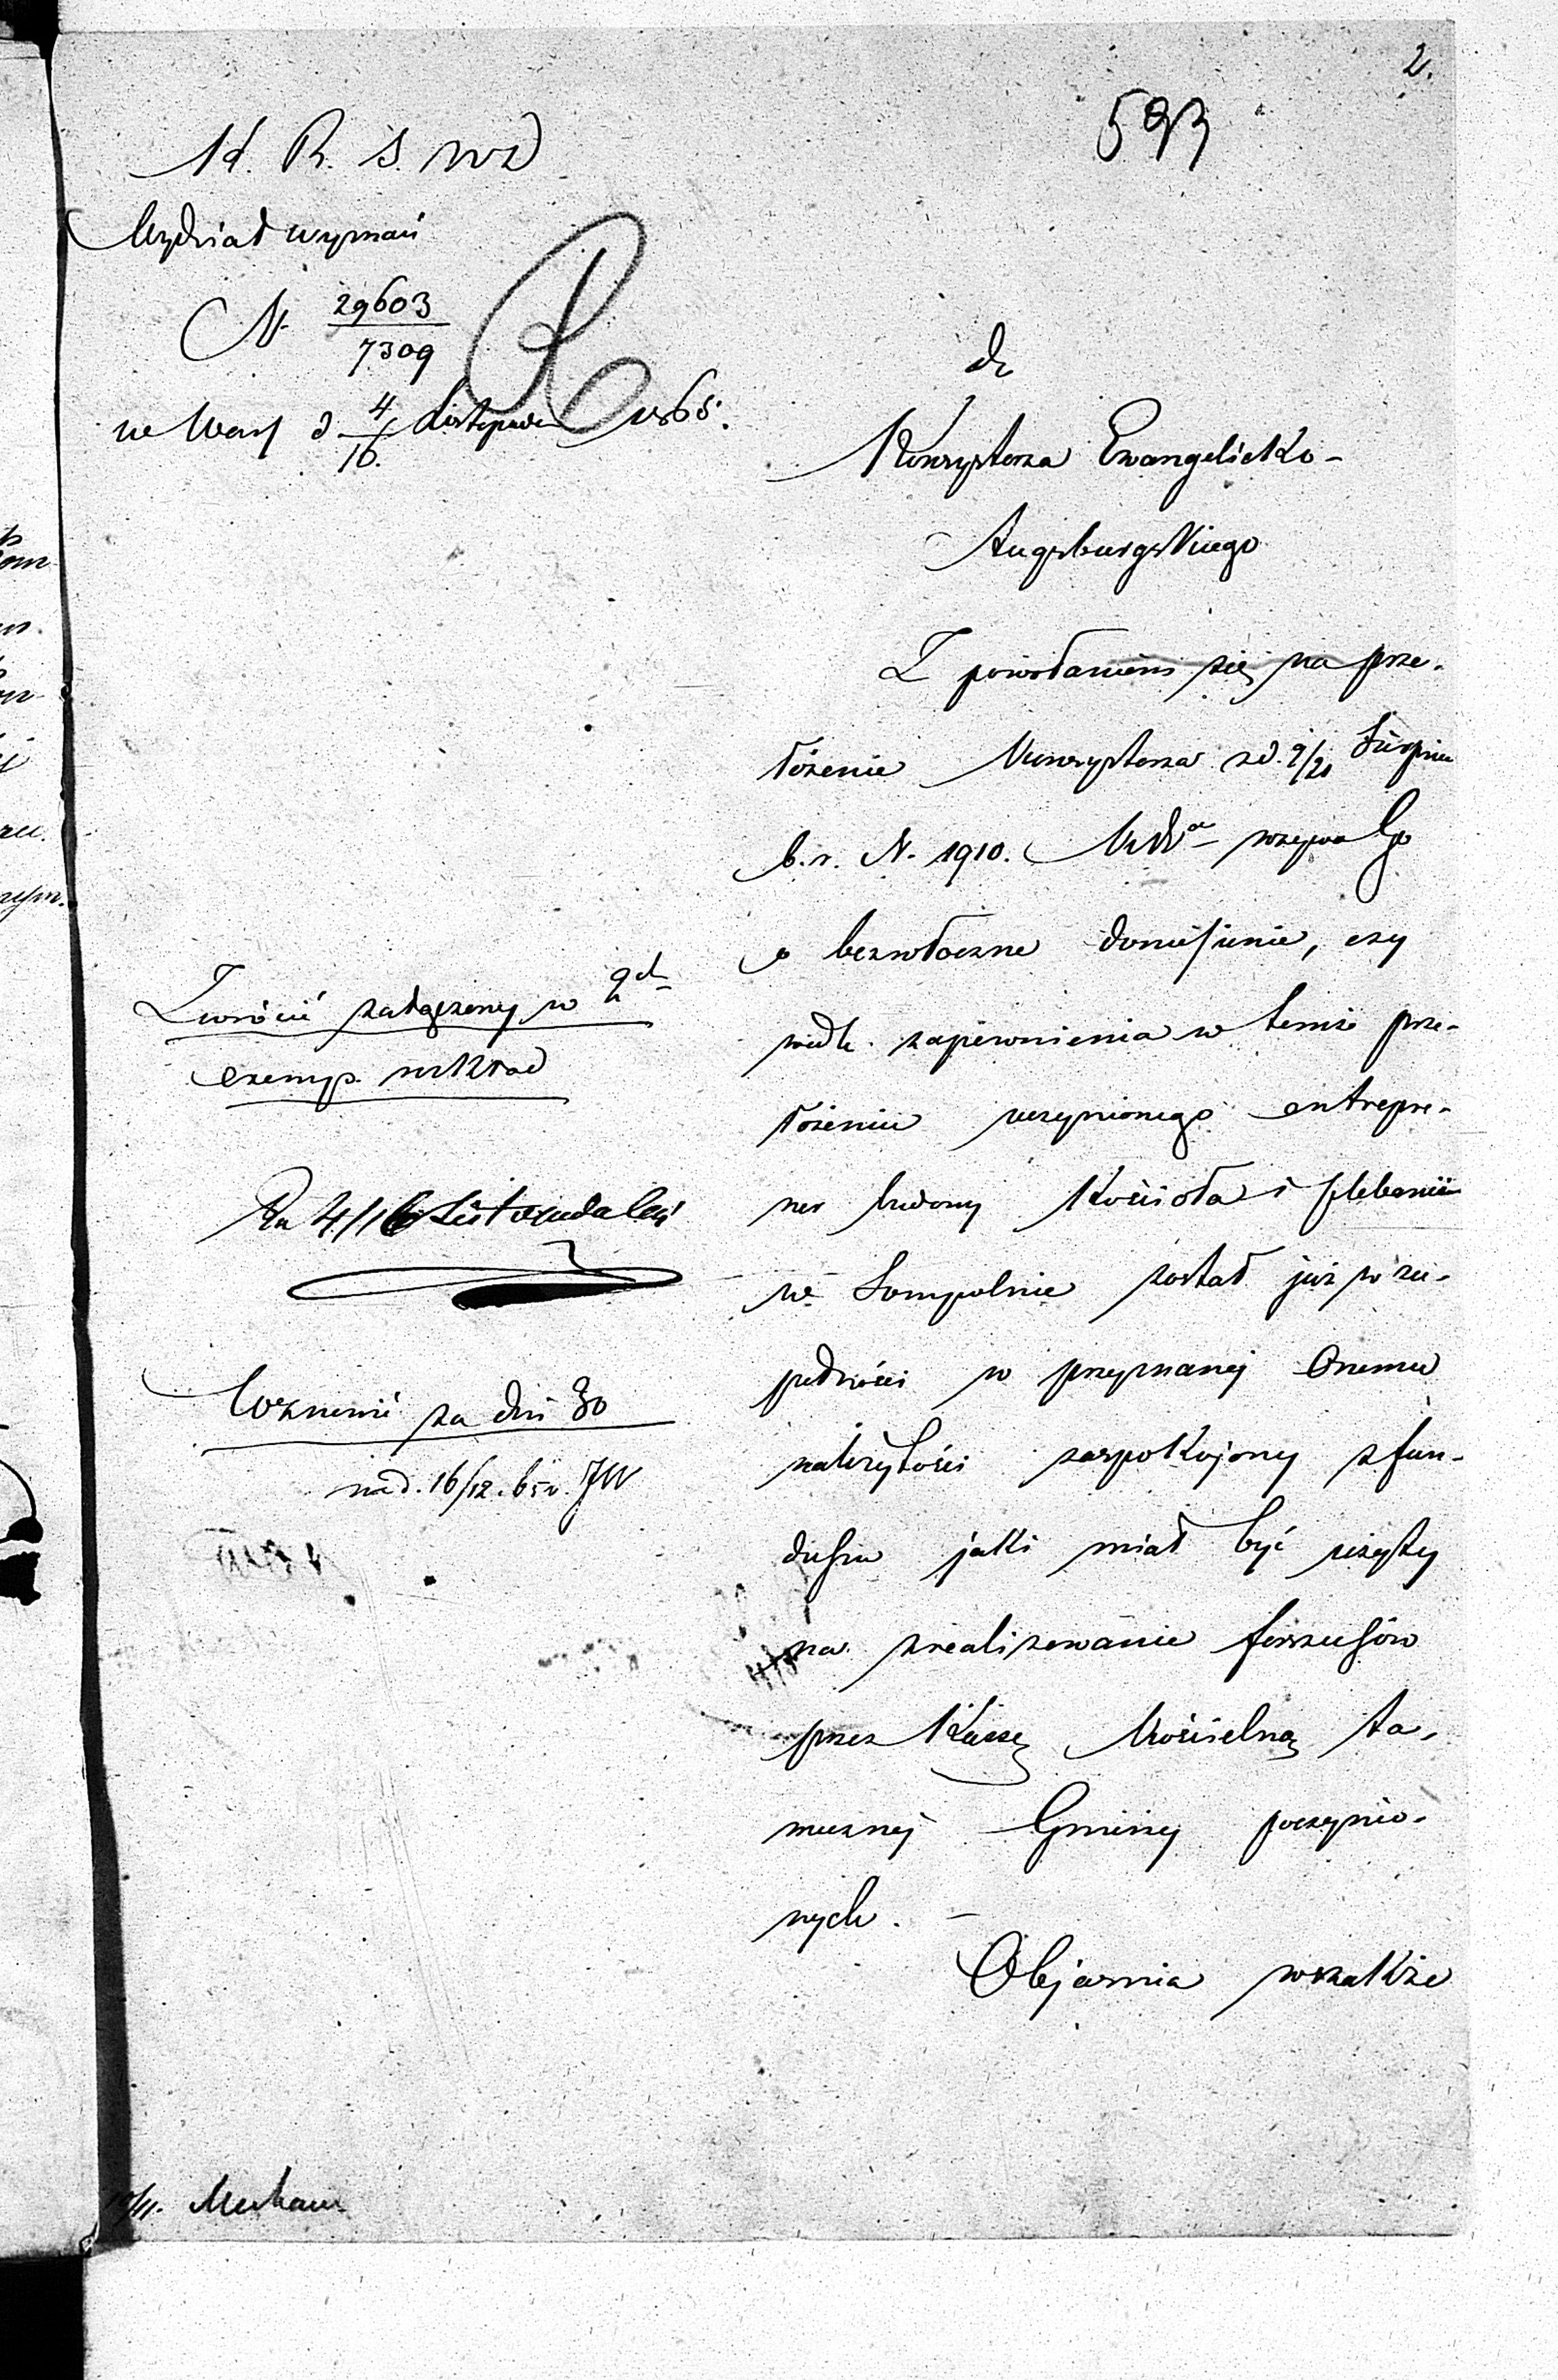 2.
593
K. R. S. W. D
Wydział wyznań
N. 29603
7309
we Wars d 4/16 Listopada 1865.
do
Konsystorza Ewangelicko-
Augsburgskiego
Z powołaniem się na prze-
łożenie Konsystorza z d. 9/21 Sierpnia
b. r. N. 1910. wzywa Go
o bezwłoczne doniesienie, czy
wedle zapewnienia w temże prze-
łożeniu uczynionego entrepre-
ner budowy Kościoła i plebanii
w Sompolnie został już w zu-
pełności w przyznanej Onemu
należytości zaspokojony z fun-
duszu jaki miał być użyty
na zrealizowanie forszusów
przez Kassę Kościelną ta-
mecznej Gminy poczynio-
nych. —
Objaśnia wszakże
Zwrócić załączony w 2ch
exemp. rozkład
4/16 Listopada
Wznowić za dni 30
nad. 16/12. 65 r. JW